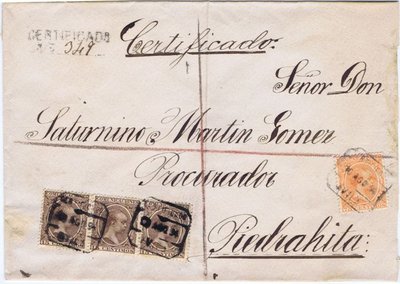 CERTIFICADO
349
Certificado.
Señor Don
Saturnino Martin Gomez
Procurador
Piedrahita: